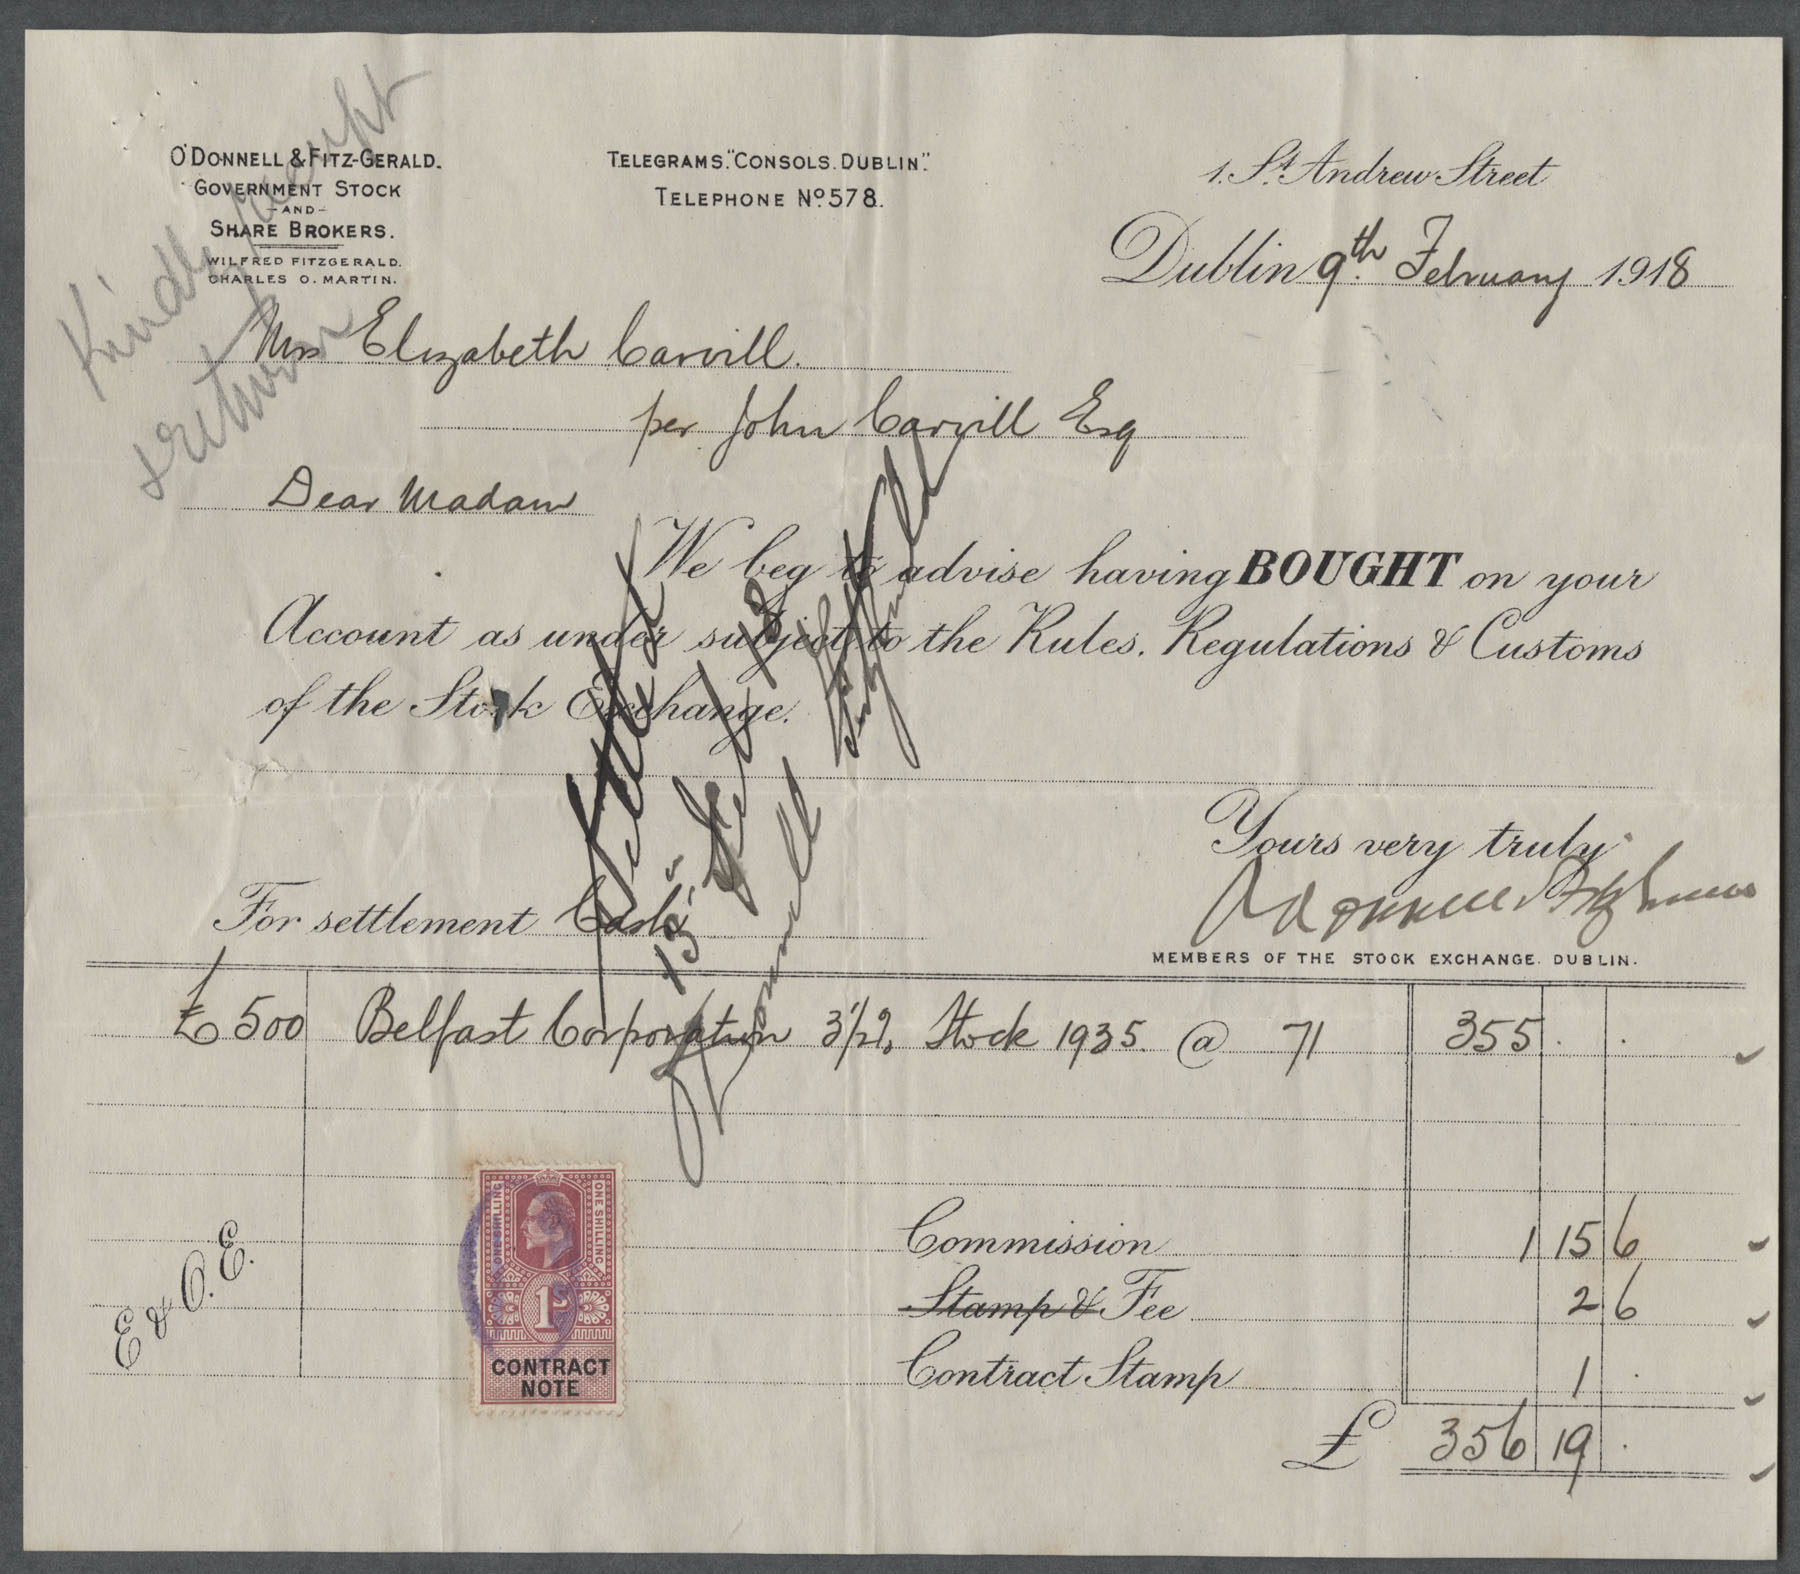 Kindly receipt
& return
O'DONNELL & FITZ-GERALD.
GOVERNMENT STOCK
-AND-
SHARE BROKERS.
WILFRED FITZGERALD.
CHARLES O. MARTIN.
TELEGRAMS. "CONSOLS. DUBLIN".
TELEPHONE No. 578.
1. St. Andrew Street
Dublin 9th February 1918
Mrs Elizabeth Carvill.
per John Carvill Esq
Dear Madam
We beg to advise having BOUGHT on your
Account as under subject to the Rules, Regulations & Customs
of the Stock Exchange.
Yours very truly
O'Donnell & Fitzgerald
MEMBERS OF THE STOCK EXCHANGE. DUBLIN.
For settlement Cash
Settled
13 Feb 18
£500 Belfast Corporation 3 1/2% Stock 1935 @ 71 355 . .
Commission 1 15 6
Stamp & Fee 2 6
Contract Stamp 1 .
£ 356 19 .
E & O. E.
ONE SHILLING
ONE SHILLING
1S
CONTRACT
NOTE